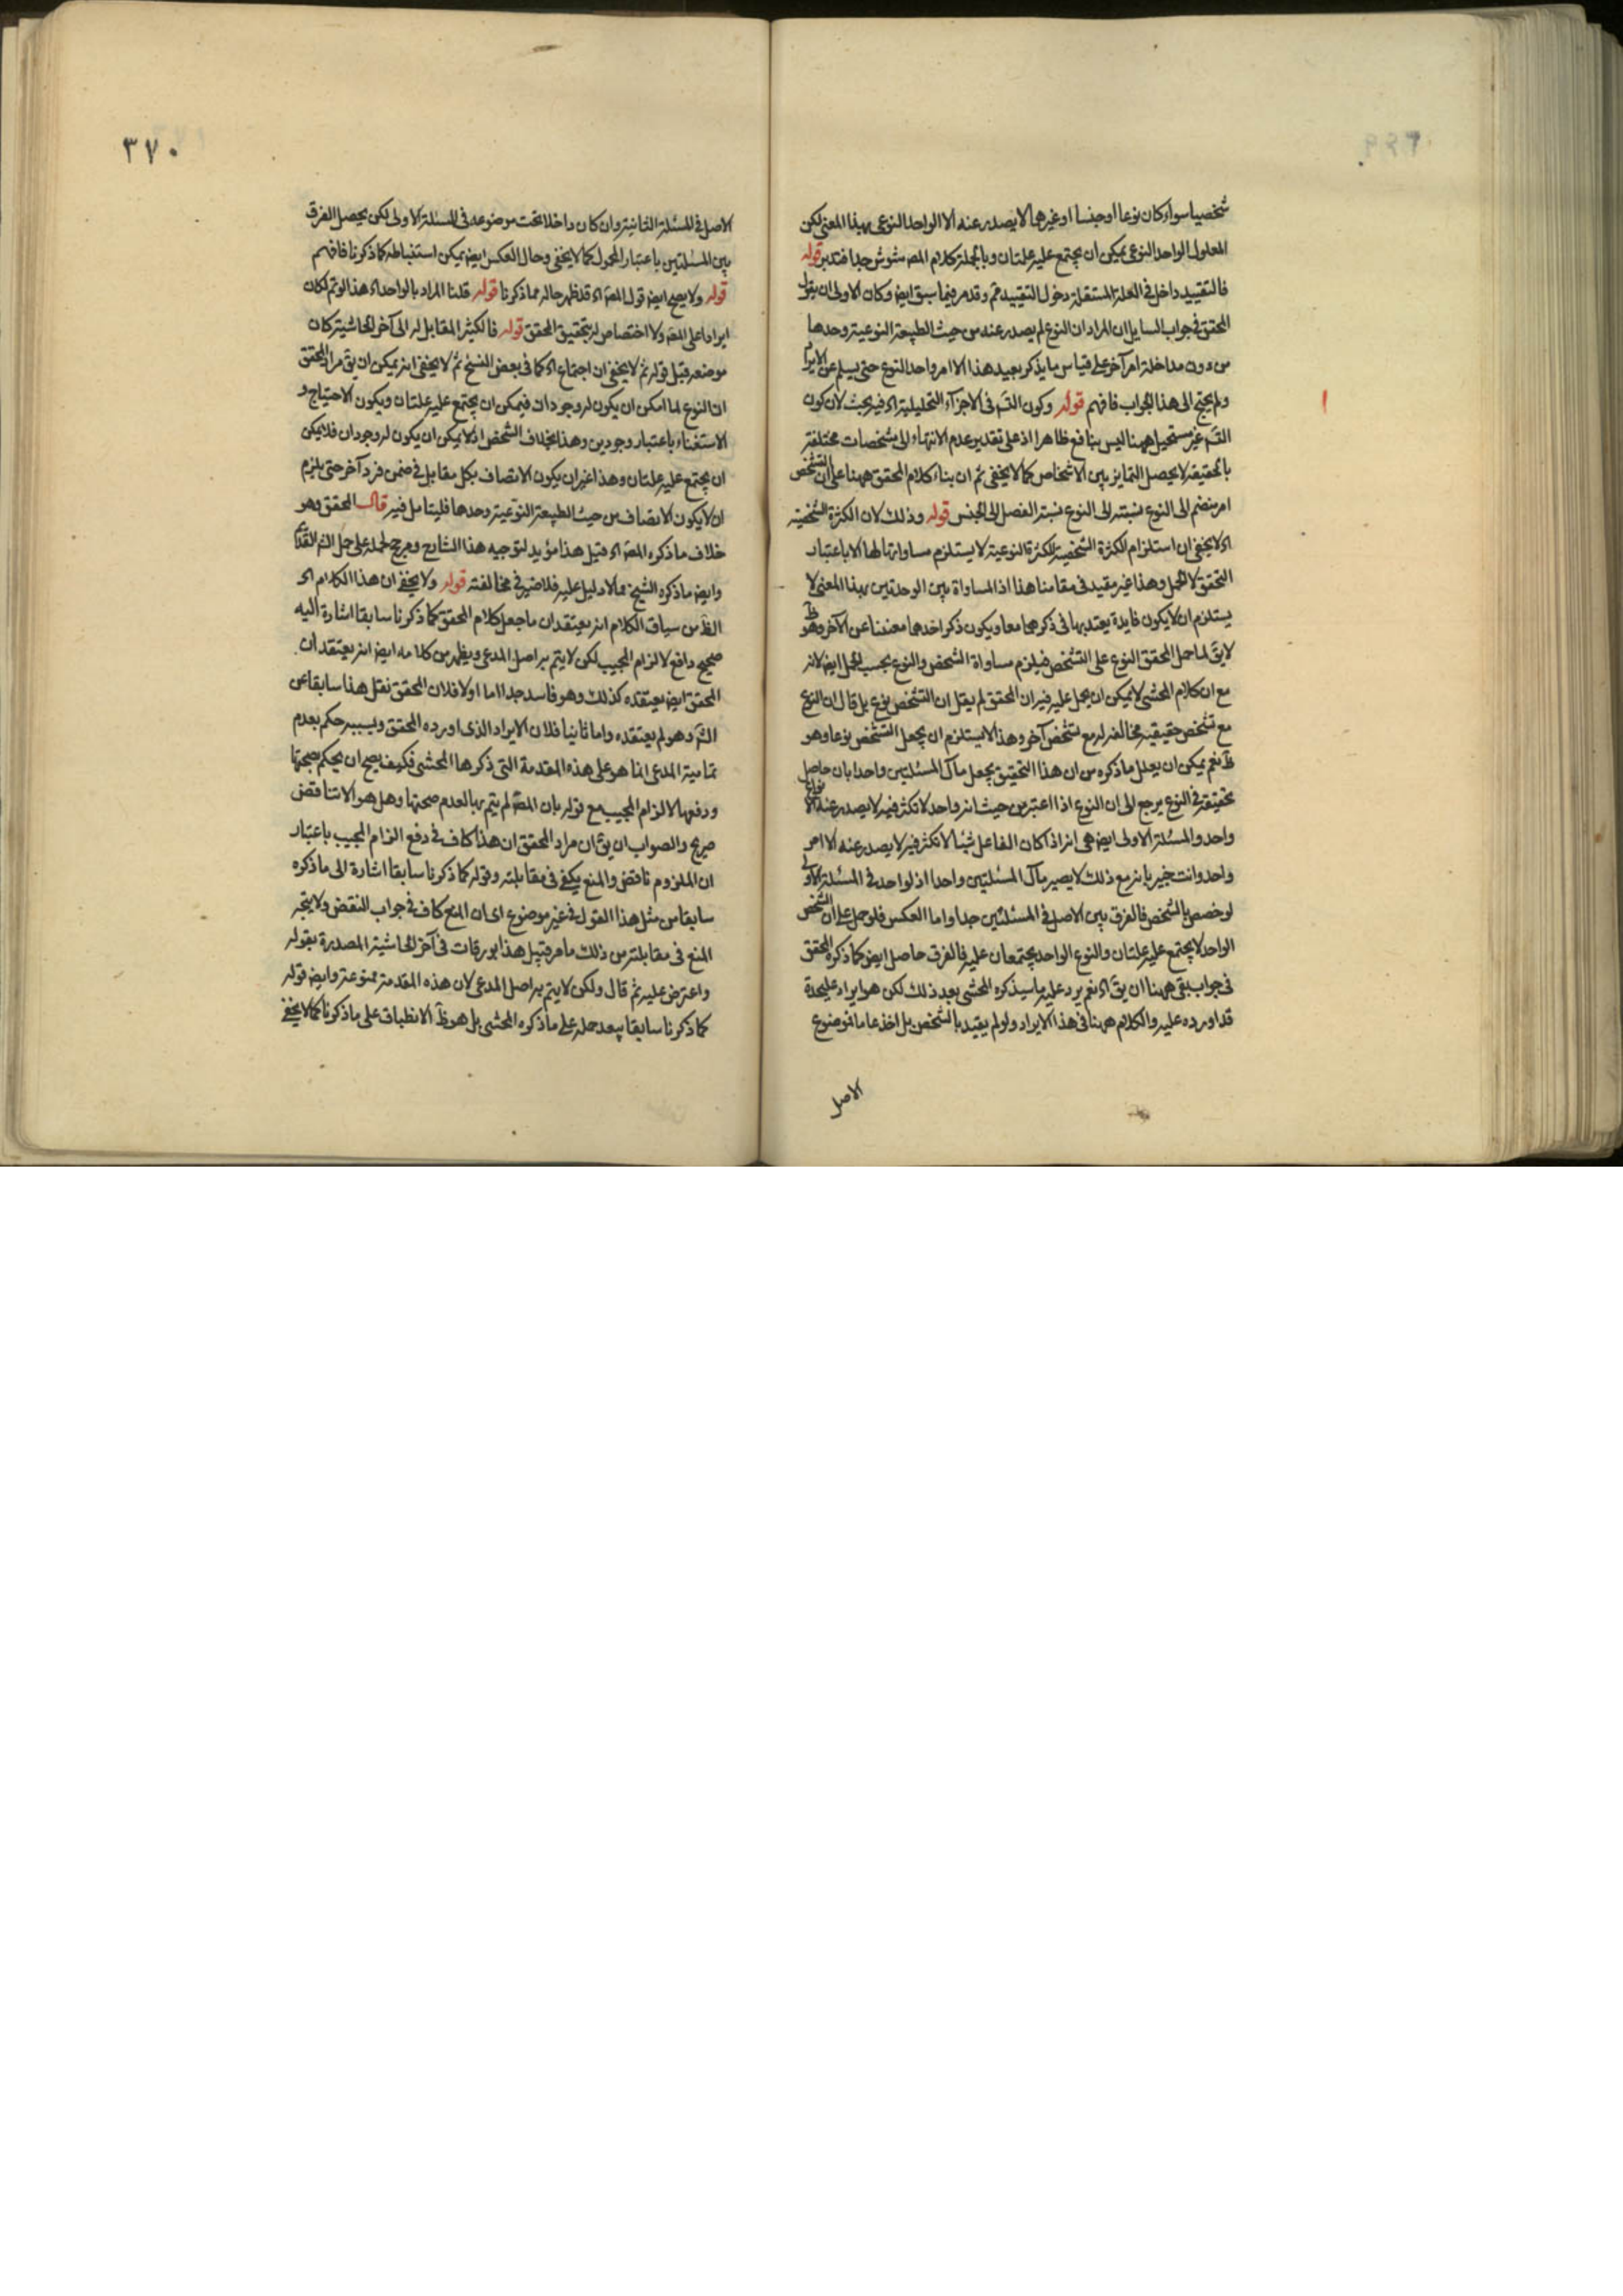 شخصيا سواء كان نوعا اوجنسا اوغيرهما لا يصدر عنه الا الواحد النوعى بهذا المعنى لكن
المعلول الواحد النوعى يمكن ان يجتمع عليه علتان وبالجملة كلام المصـ مشوش جدا فتدبر قوله
فالتقييد داخل فى العلة المستقلة دخول التقييد ثم وقد مر فيما سبق ايضـ وكان الاولى ان يقول
المحقق فى جواب السايل ان المراد ان النوع لم يصدر عنه من حيث الطبيعة النوعية وحدها
من دون مداخلة امر آخر على قياس ما يذكر بعيد هذا الا امر واحد النوع حتى يسلم عن الايراد
ولم يحتج الى هذا الجواب فافهم قوله وكون التسـ فى الاجزآء التحليلية اه فيه بحث لان كون
التسـ غير مستحيل ههنا ليس بنافع ظاهرا اذ على تقدير عدم الانتهاء الى مشخصات مختلفة
بالحقيقة لا يحصل التمايز بين الاشخاص كما لا يخفى ثم ان بناء كلام المحقق ههنا على ان التشخص
امر منضم الى النوع نسبته الى النوع نسبة الفصل الى الجنس قوله وذلك لان الكثرة الشخصية
اه لا يخفى ان استلزام الكثرة الشخصية للكثرة النوعية لا يستلزم مساواتها لها الا باعتبار
التحقق لا الحمل وهذا غير مقيد فى مقامنا هذا اذ المساواة بين الوحدتين بهذا المعنى لا
يستلزم ان لا يكون فايدة يعتد بها فى ذكرهما معا ويكون ذكر احدهما مغنيا عن الآخر وهو ظـ
لا يقـ لما حمل المحقق النوع على التشخص فيلزم مساواة الشخص والنوع بحسب الحمل ايضـ لانه
مع ان كلام المحشى لا يمكن ان يحمل عليه فيه ان المحقق لم يقل ان التشخص نوع بل قال ان النوع
مع تشخص حقيقية مخالفة له مع تشخص آخر وهذا لا يستلزم ان يجعل التشخص نوعا وهو
ظـ نعم يمكن ان يعلل ما ذكره من ان هذا التحقيق يجعل مآل المسئلتين واحدا بان حاصل
تحقيقه فى النوع يرجع الى ان النوع اذا اعتبر من حيث انه واحد لا تكثر فيه لا يصدر عنه الا نوع
واحد والمسئلة الاولى ايضـ هى انه اذا كان الفاعل شيئا لا تكثر فيه لا يصدر عنه الا امر
واحد وانت خبير بانه مع ذلك لا يصير مآل المسئلتين واحدا اذ لواحد فى المسئلة الاولى
لو خصص بالشخص فالفرق بين الاصل فى المسئلتين جدا واما العكس فلو حمل على ان الشخص
الواحد لا يجتمع عليه علتان والنوع الواحد يجتمعان عليه فالفرق حاصل ايضـ كما ذكره المحقق
فى جواب بقى ههنا ان يقـ اه نعم يرد عليه ما سيذكره المحشى بعد ذلك لكن هو ايراد عليحدة
قد اورده عليه والكلام ههنا فى هذا الايراد ولو لم يقيد بالشخص بل اخذ عاما فموضوع
الاصل
٣٧٠
الاصل فى المسئلة الثانية وان كان داخلا تحت موضوعه فى المسئلة الاولى لكن يحصل الفرق
بين المسئلتين باعتبار المحمول كما لا يخفى وحال العكس ايضـ يمكن استنباطه كما ذكرنا فافهم
قوله ولا يصح ايضـ قول المصـ اه قد ظهر حاله مما ذكرنا قوله قلنا المراد بالواحد اه هذا لو تم لكان
ايرادا على المصـ ولا اختصاص له بتحقيق المحقق قوله فالكثير المقابل له الى آخر الحاشية كان
موضعه قبل قوله ثم لا يخفى ان اجتماع اه كما فى بعض النسخ ثم لا يخفى انه يمكن ان يقـ مراد المحقق
ان النوع لما امكن ان يكون له وجودات فيمكن ان يجتمع عليه علتان ويكون الاحتياج و
الاستغناء باعتبار وجودين وهذا بخلاف الشخص اذ لا يمكن ان يكون له وجودان فلا يمكن
ان يجتمع عليه علتان وهذا غير ان يكون الاتصاف بكل مقابل فى ضمن فرد آخر حتى يلزم
ان لا يكون الاتصاف من حيث الطبيعة النوعية وحدها فليتامل فيه قال المحقق وهو
خلاف ما ذكره المصـ اه قيل هذا مؤيد لتوجيه هذا الشارح ومرجح لحمله على حمل الشـ القديم
وايضـ ما ذكره الشيخ مما لا دليل عليه فلا ضير فى مخالفته قوله ولا يخفى ان هذا الكلام اه
الظـ من سياق الكلام انه يعتقد ان ما جعل كلام المحقق كما ذكرنا سابقا اشارة اليه
صحيح دافع لالزام المجيب لكن لا يتم به اصل المدعى ويظهر من كلامه ايضـ انه يعتقد ان
المحقق ايضـ يعتقده كذلك وهو فاسد جدا اما اولا فلان المحقق نقل هذا سابقا عن
الشـ وهو لم يعتقده واما ثانيا فلان الايراد الذى اورده المحقق وبسببه حكم بعدم
تمامية المدعى انما هو على هذه المقدمة التى ذكرها المحشى فكيف يصح ان يحكم بصحتها
ودفعها لالزام المجيب مع قوله بان المصـ لم يتم بها لعدم صحتها وهل هو الا تناقض
صريح والصواب ان يقـ ان مراد المحقق ان هذا كاف فى دفع الزام المجيب باعتبار
ان الملزوم ناقض والمنع يكفى فى مقابلته وقوله كما ذكرنا سابقا اشارة الى ما ذكره
سابقا من مثل هذا القول فى غير موضوع اى ان المنع كاف فى جواب النقض ولا يتجه
المنع فى مقابلته من ذلك ما مر قبيل هذا بورقات فى آخر الحاشية المصدرة بقوله
واعترض عليه ثم قال ولكن لا يتم به اصل المدعى لان هذه المقدمة ممنوعة وايضـ قوله
كما ذكرنا سابقا يبعد حمله على ما ذكره المحشى بل هو ظـ الانطباق على ما ذكرنا كما لا يخفى